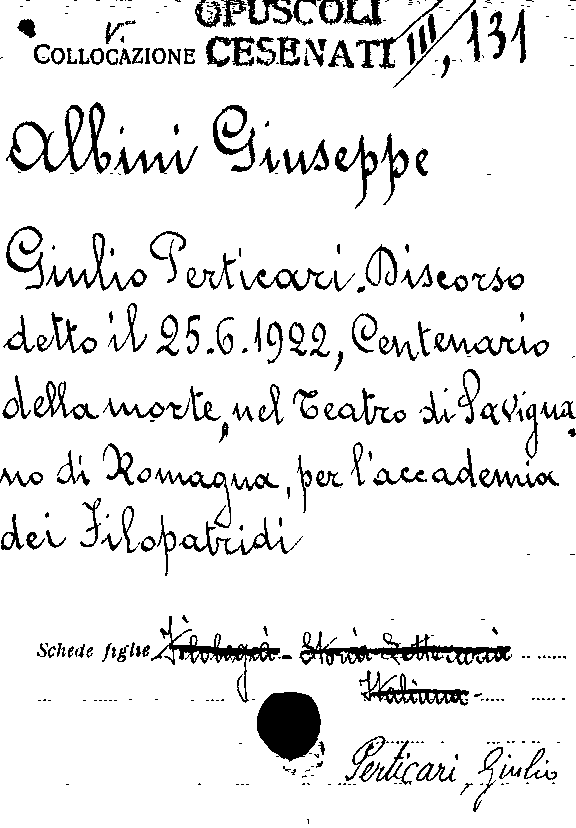 OPUSCOLI
V.
COLLOCAZIONE CESENATI III, 131
Albini Giuseppe
Giulio Perticari. Discorso
detto il 25.6.1922, Centenario
della morte, nel Teatro di Savigna
no di Romagna, per l'accademia
dei Filopatridi
Schede figlie Filologia - Storia Letteraria
Italiana -
Perticari, Giulio